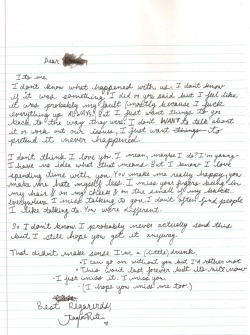 Dear
I to me.
I don't know what happened with us. I don't know
if it was something I did or you said but I feel like
it was probably my fault (mostly because I fuck
everything up ALWAYS) But I just want things to go
back to the way they were. I don't WANT to talk about
it or work out our issues, I just want things to
pretend it never happened.
I don't think I love you. I mean, maybe I do? I'm young-
I have no idea what that means. But I know I love
spending time with you. You make me really happy, you
make me hate myself less. I miss your fingers being in
my hair & on my cheek & on the small of my back &
everywhere. I miss talking to you. I don't often find people
I like talking to. You were different.
So I don't know. I probably never actually send this
but I still hope you get it anyway.
That didn't make sense I'm a (little) drunk.
- I can go on without you but I'd rather not
- This won't last forever but
- I just miss it. I miss you.
- (I hope you miss me too.)
Best Regards,